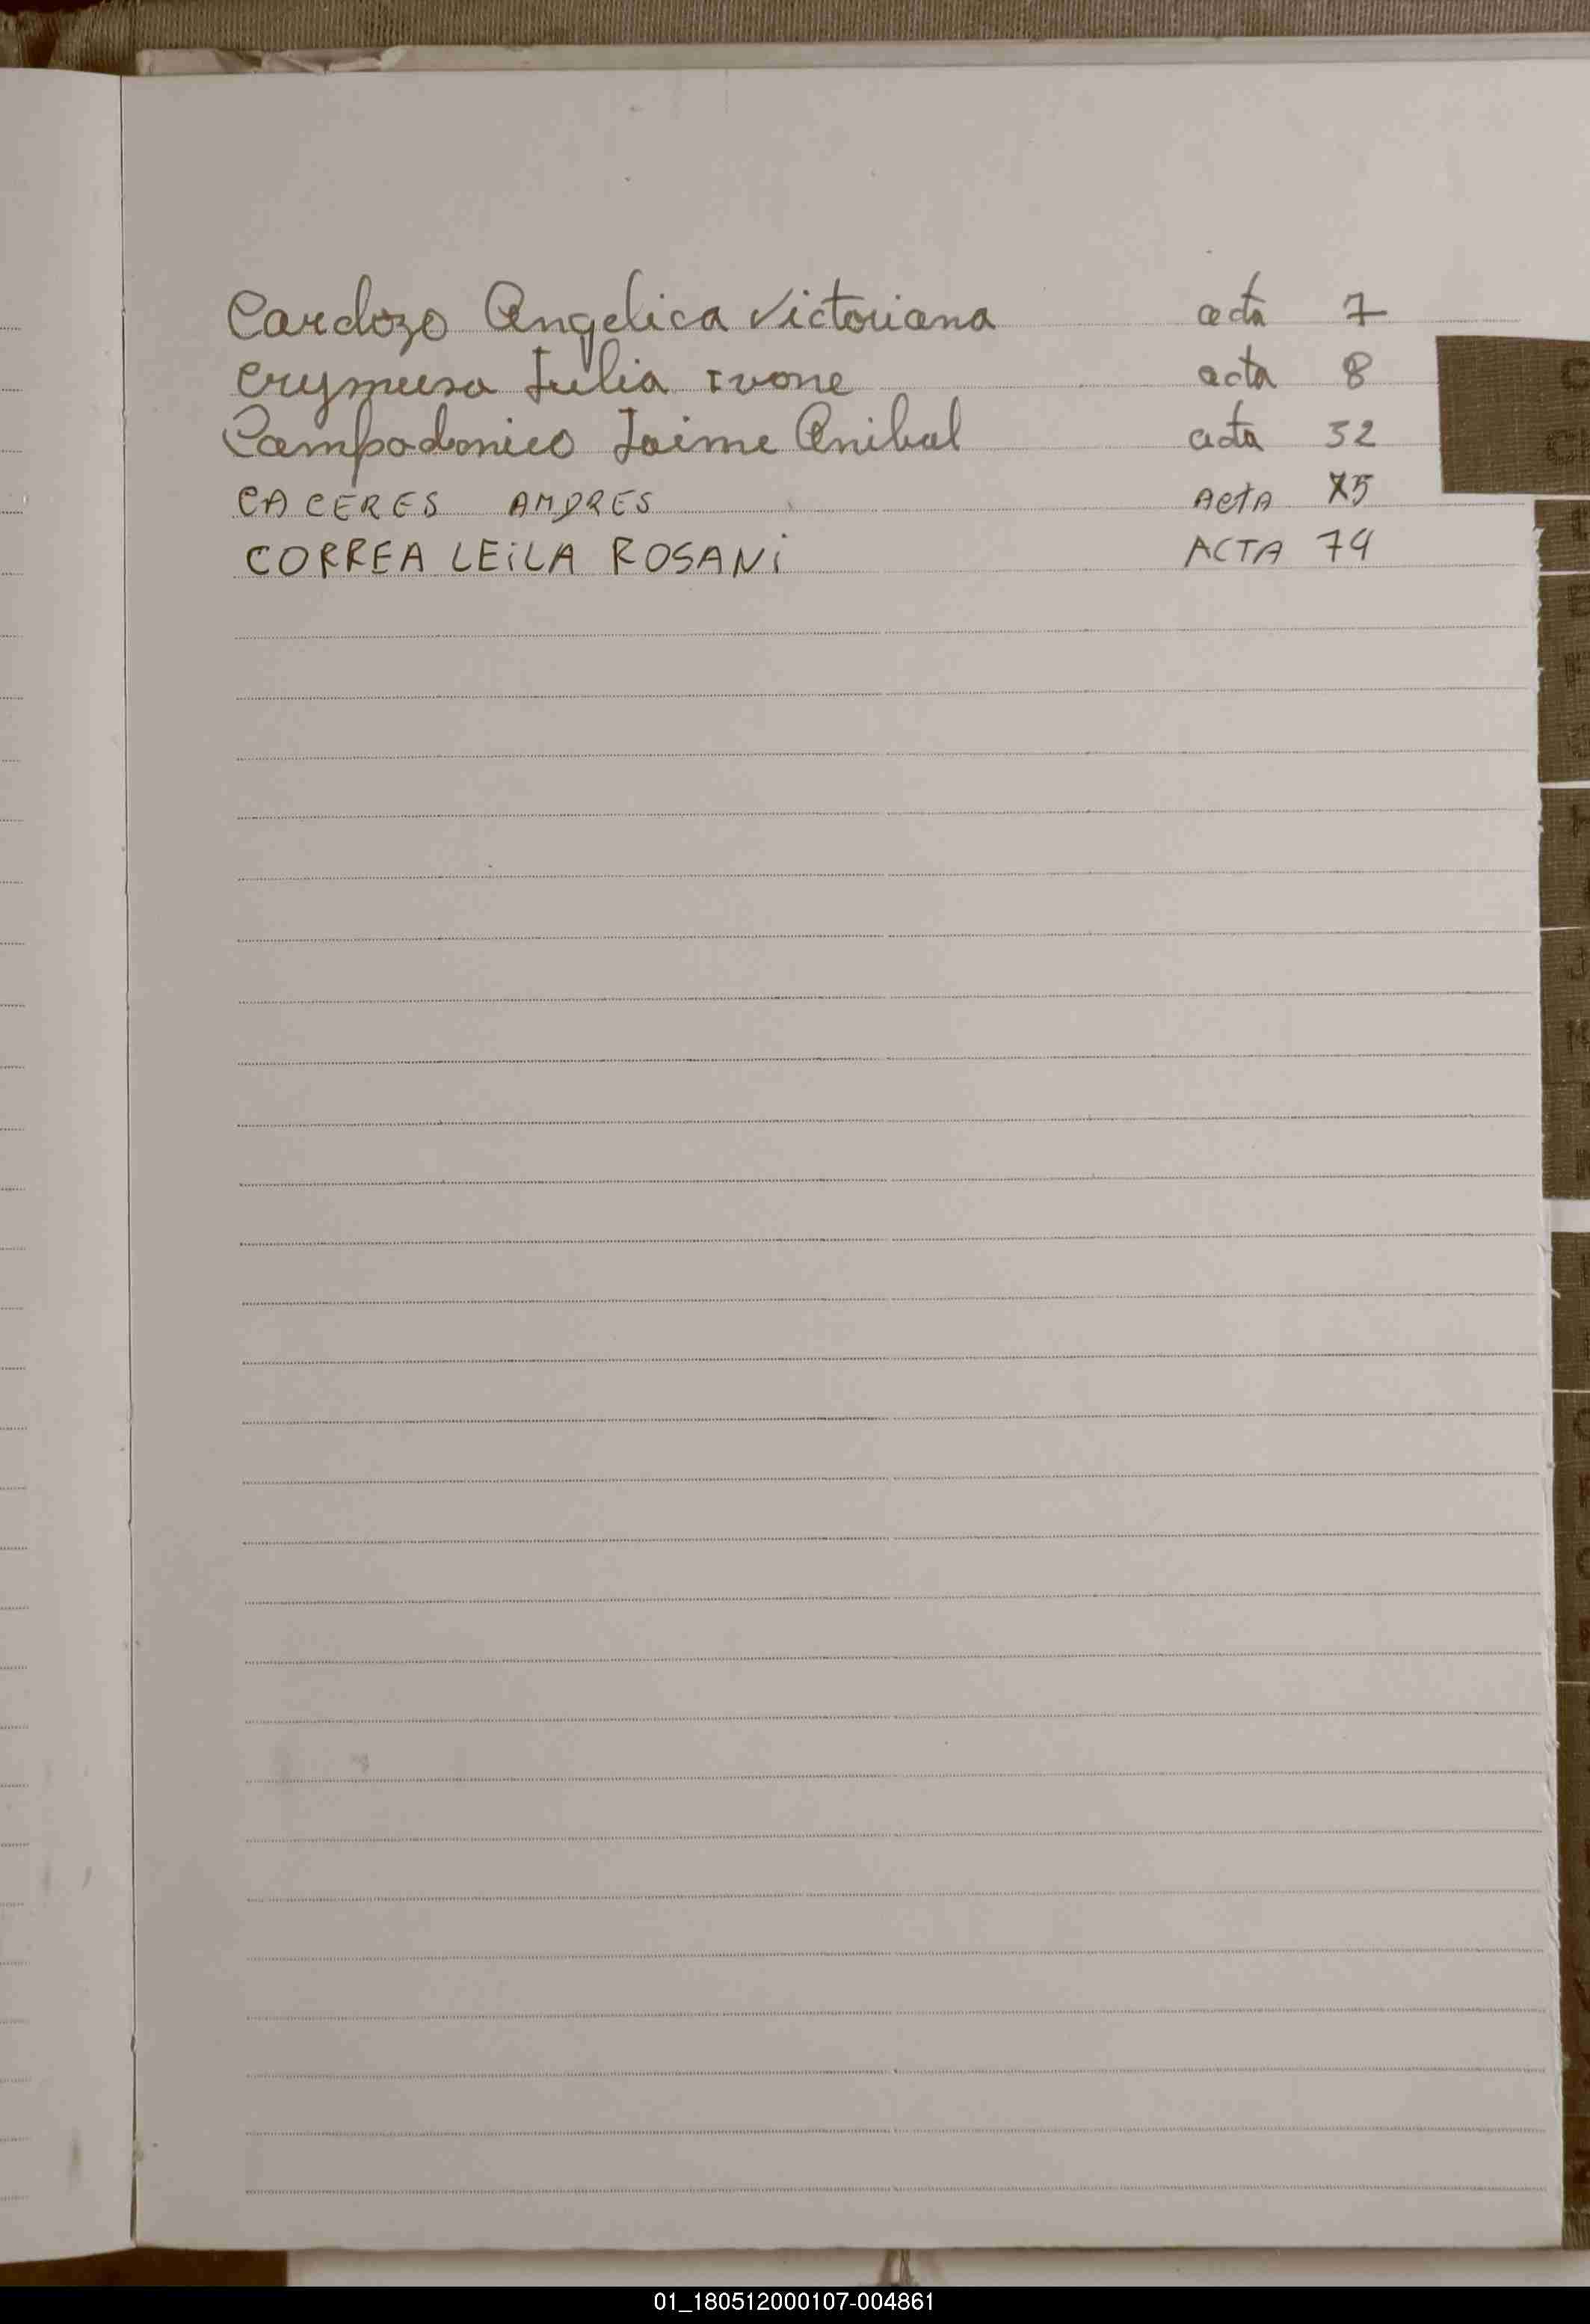 Cardozo Angelica Victoriana acta 7
Julia Ivone acta 8
Campodonico Jaime Anibal acta 32
CACERES ANDRES ACTA 75
CORREA LEiLA ROSANi ACTA 74
01_180512000107-004861